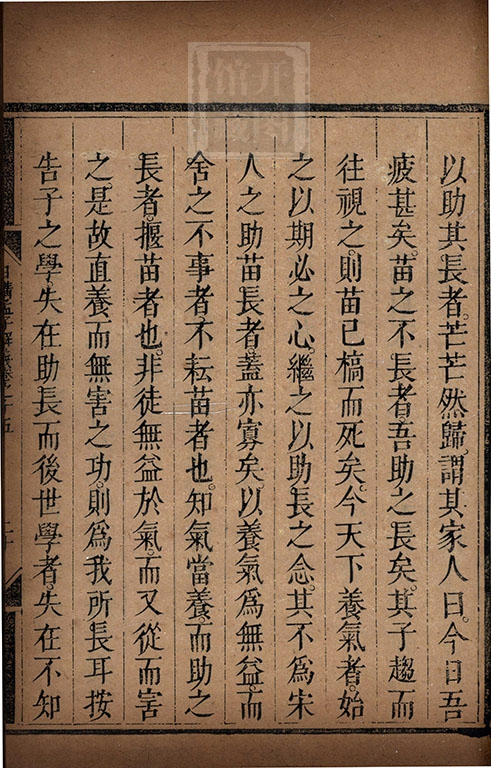 以助其長者。芒芒然歸。謂其家人曰。今日吾
疲甚矣。苗之不長者吾助之長矣。其子趨而
往視之。則苗已槁而死矣。今天下養氣者。始
之以期必之心。繼之以助長之念。其不為宋
人之助苗長者。蓋亦寡矣。以養氣為無益。而
舍之不事者。不耘苗者也。知氣當養。而助之
長者。揠苗者也。非徒無益於氣。而又從而害
之。是故直養而無害之功。則為我所長耳。按
告子之學。失在助長。而後世學者。失在不知
日講四書解義卷之十五
二十